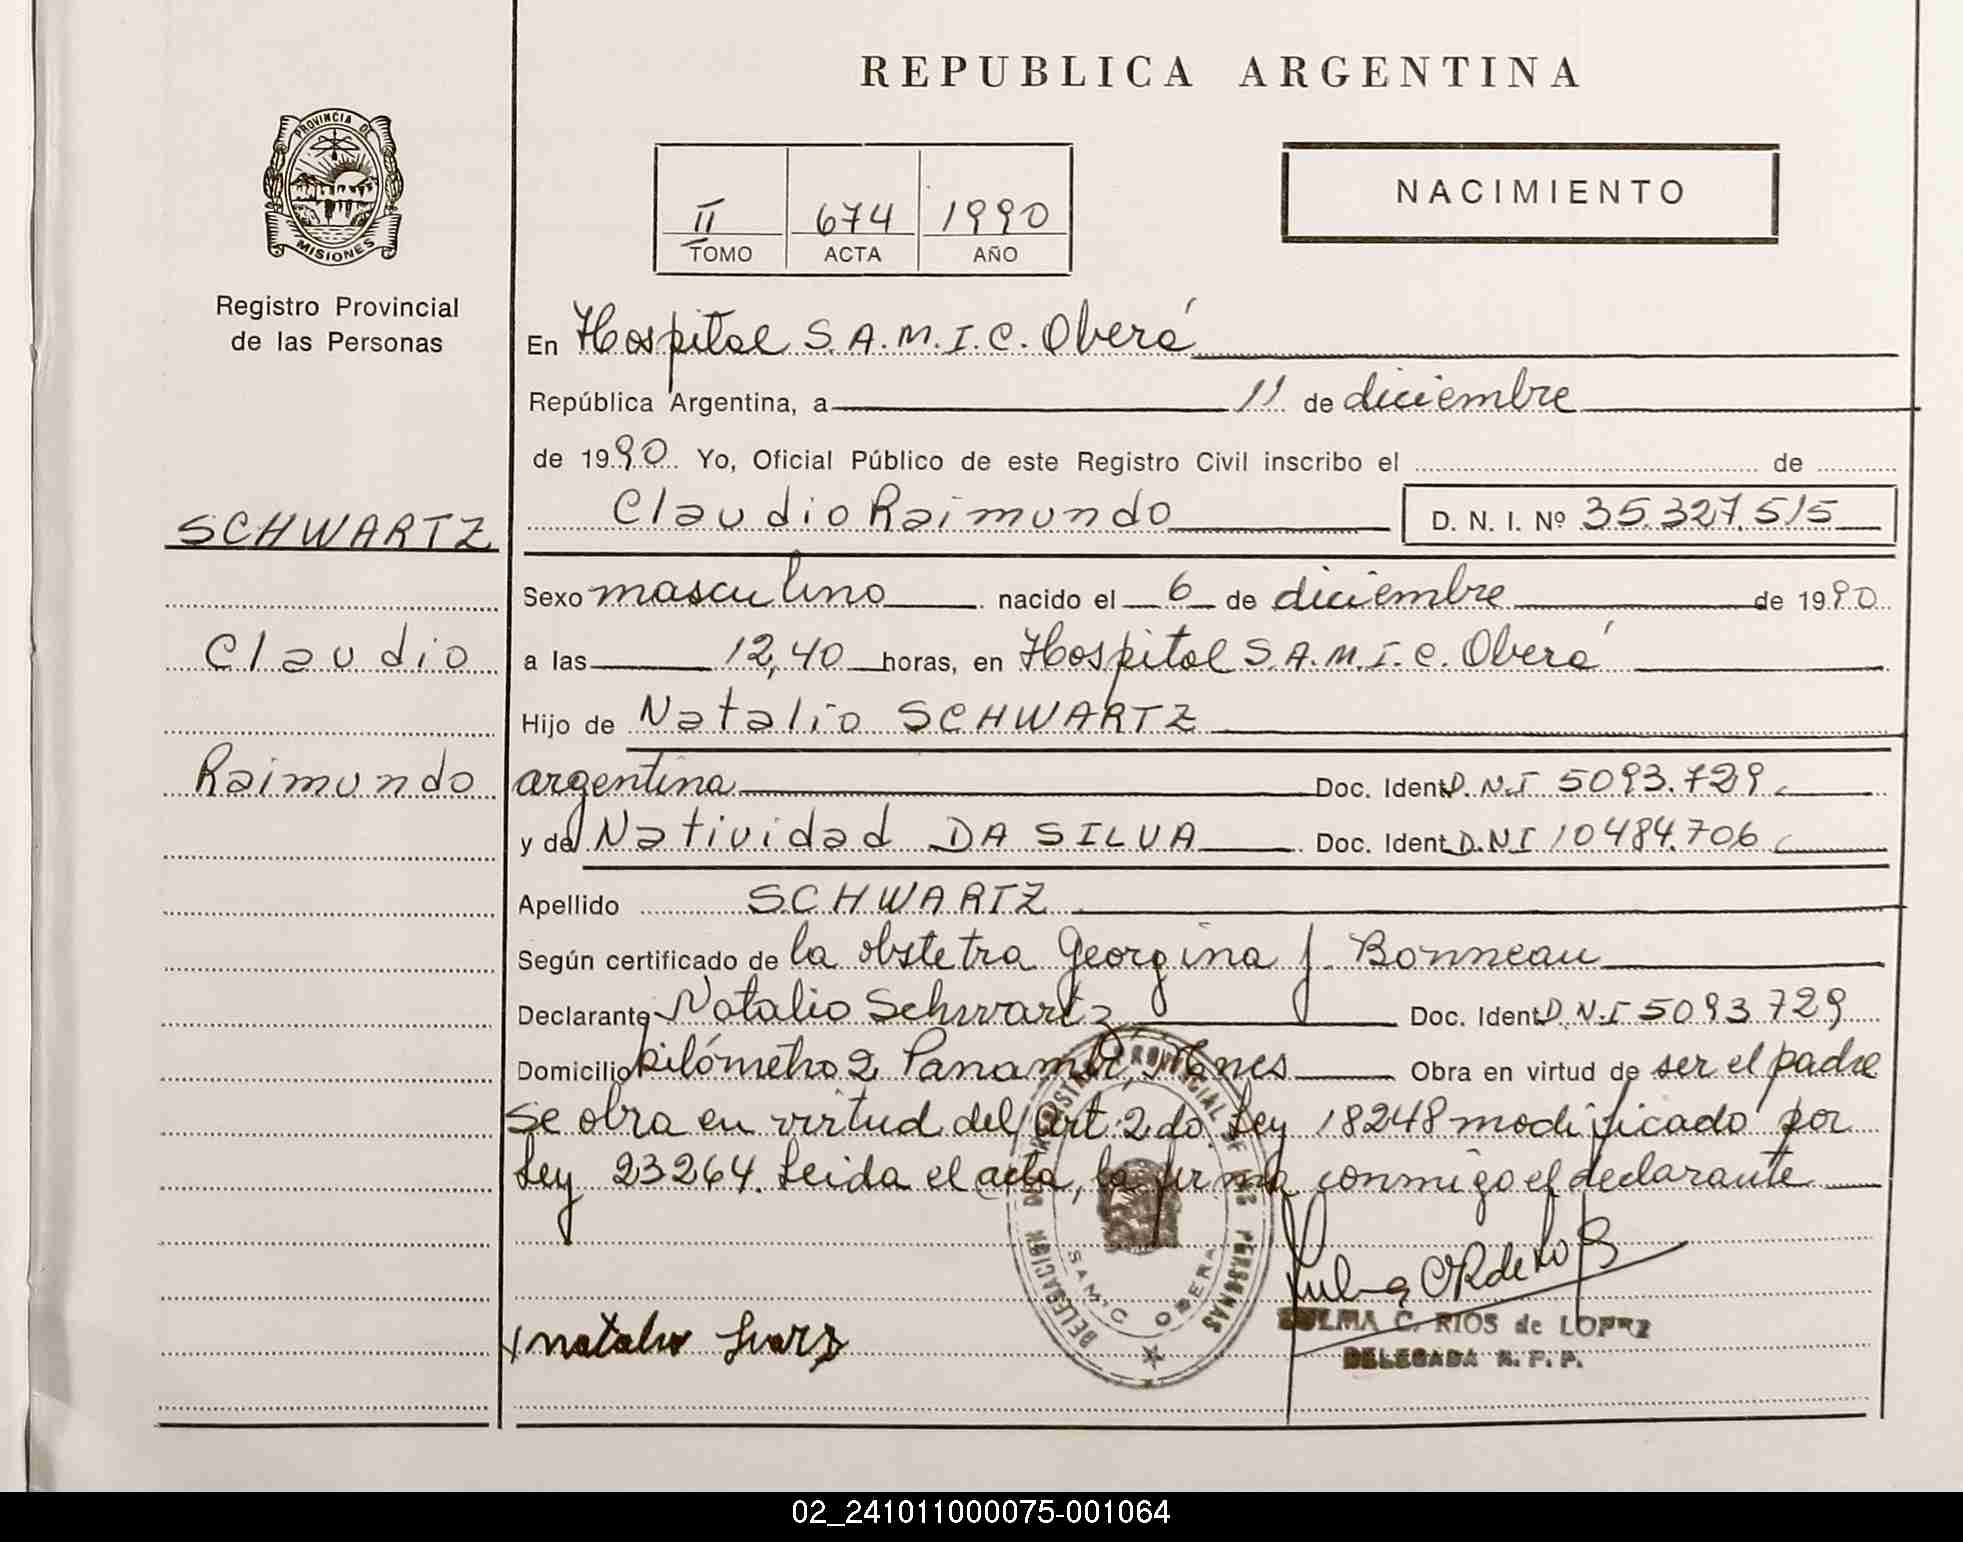 REPUBLICA ARGENTINA
PROVINCIA DE
MISIONES
Registro Provincial
de las Personas
II 674 1990
TOMO ACTA AÑO
NACIMIENTO
En Hospital S.A.M.I.C. Oberá
República Argentina, a 11 de diciembre
de 1990. Yo, Oficial Público de este Registro Civil inscribo el de
SCHWARTZ
Claudio
Raimundo
Claudio Raimundo D. N. I. Nº 35.327.515
Sexo masculino nacido el 6 de diciembre de 1990
a las 12,40 horas, en Hospital S.A.M.I.C. Oberá
Hijo de Natalio SCHWARTZ
argentina Doc. Ident D.N.I 5093.729
y de Natividad DA SILVA Doc. Ident. D.N.I 10484.706
Apellido SCHWARTZ
Según certificado de la obstetra Georgina J. Bonneau
Declarante Natalio Schwartz Doc. Ident D.N.I 5093729
Domicilio kilómetro 2 Panambí, Mnes Obra en virtud de ser el padre
Se obra en virtud del Art. 2do. Ley 18248 modificado por
Ley 23264. Leida el acta, la firma conmigo el declarante
DELEGACION PROVINCIAL DE LAS PERSONAS
SAMIC OBERA
natalio
ZULMA C. RIOS de LOPEZ
DELEGADA R. P. P.
02_241011000075-001064